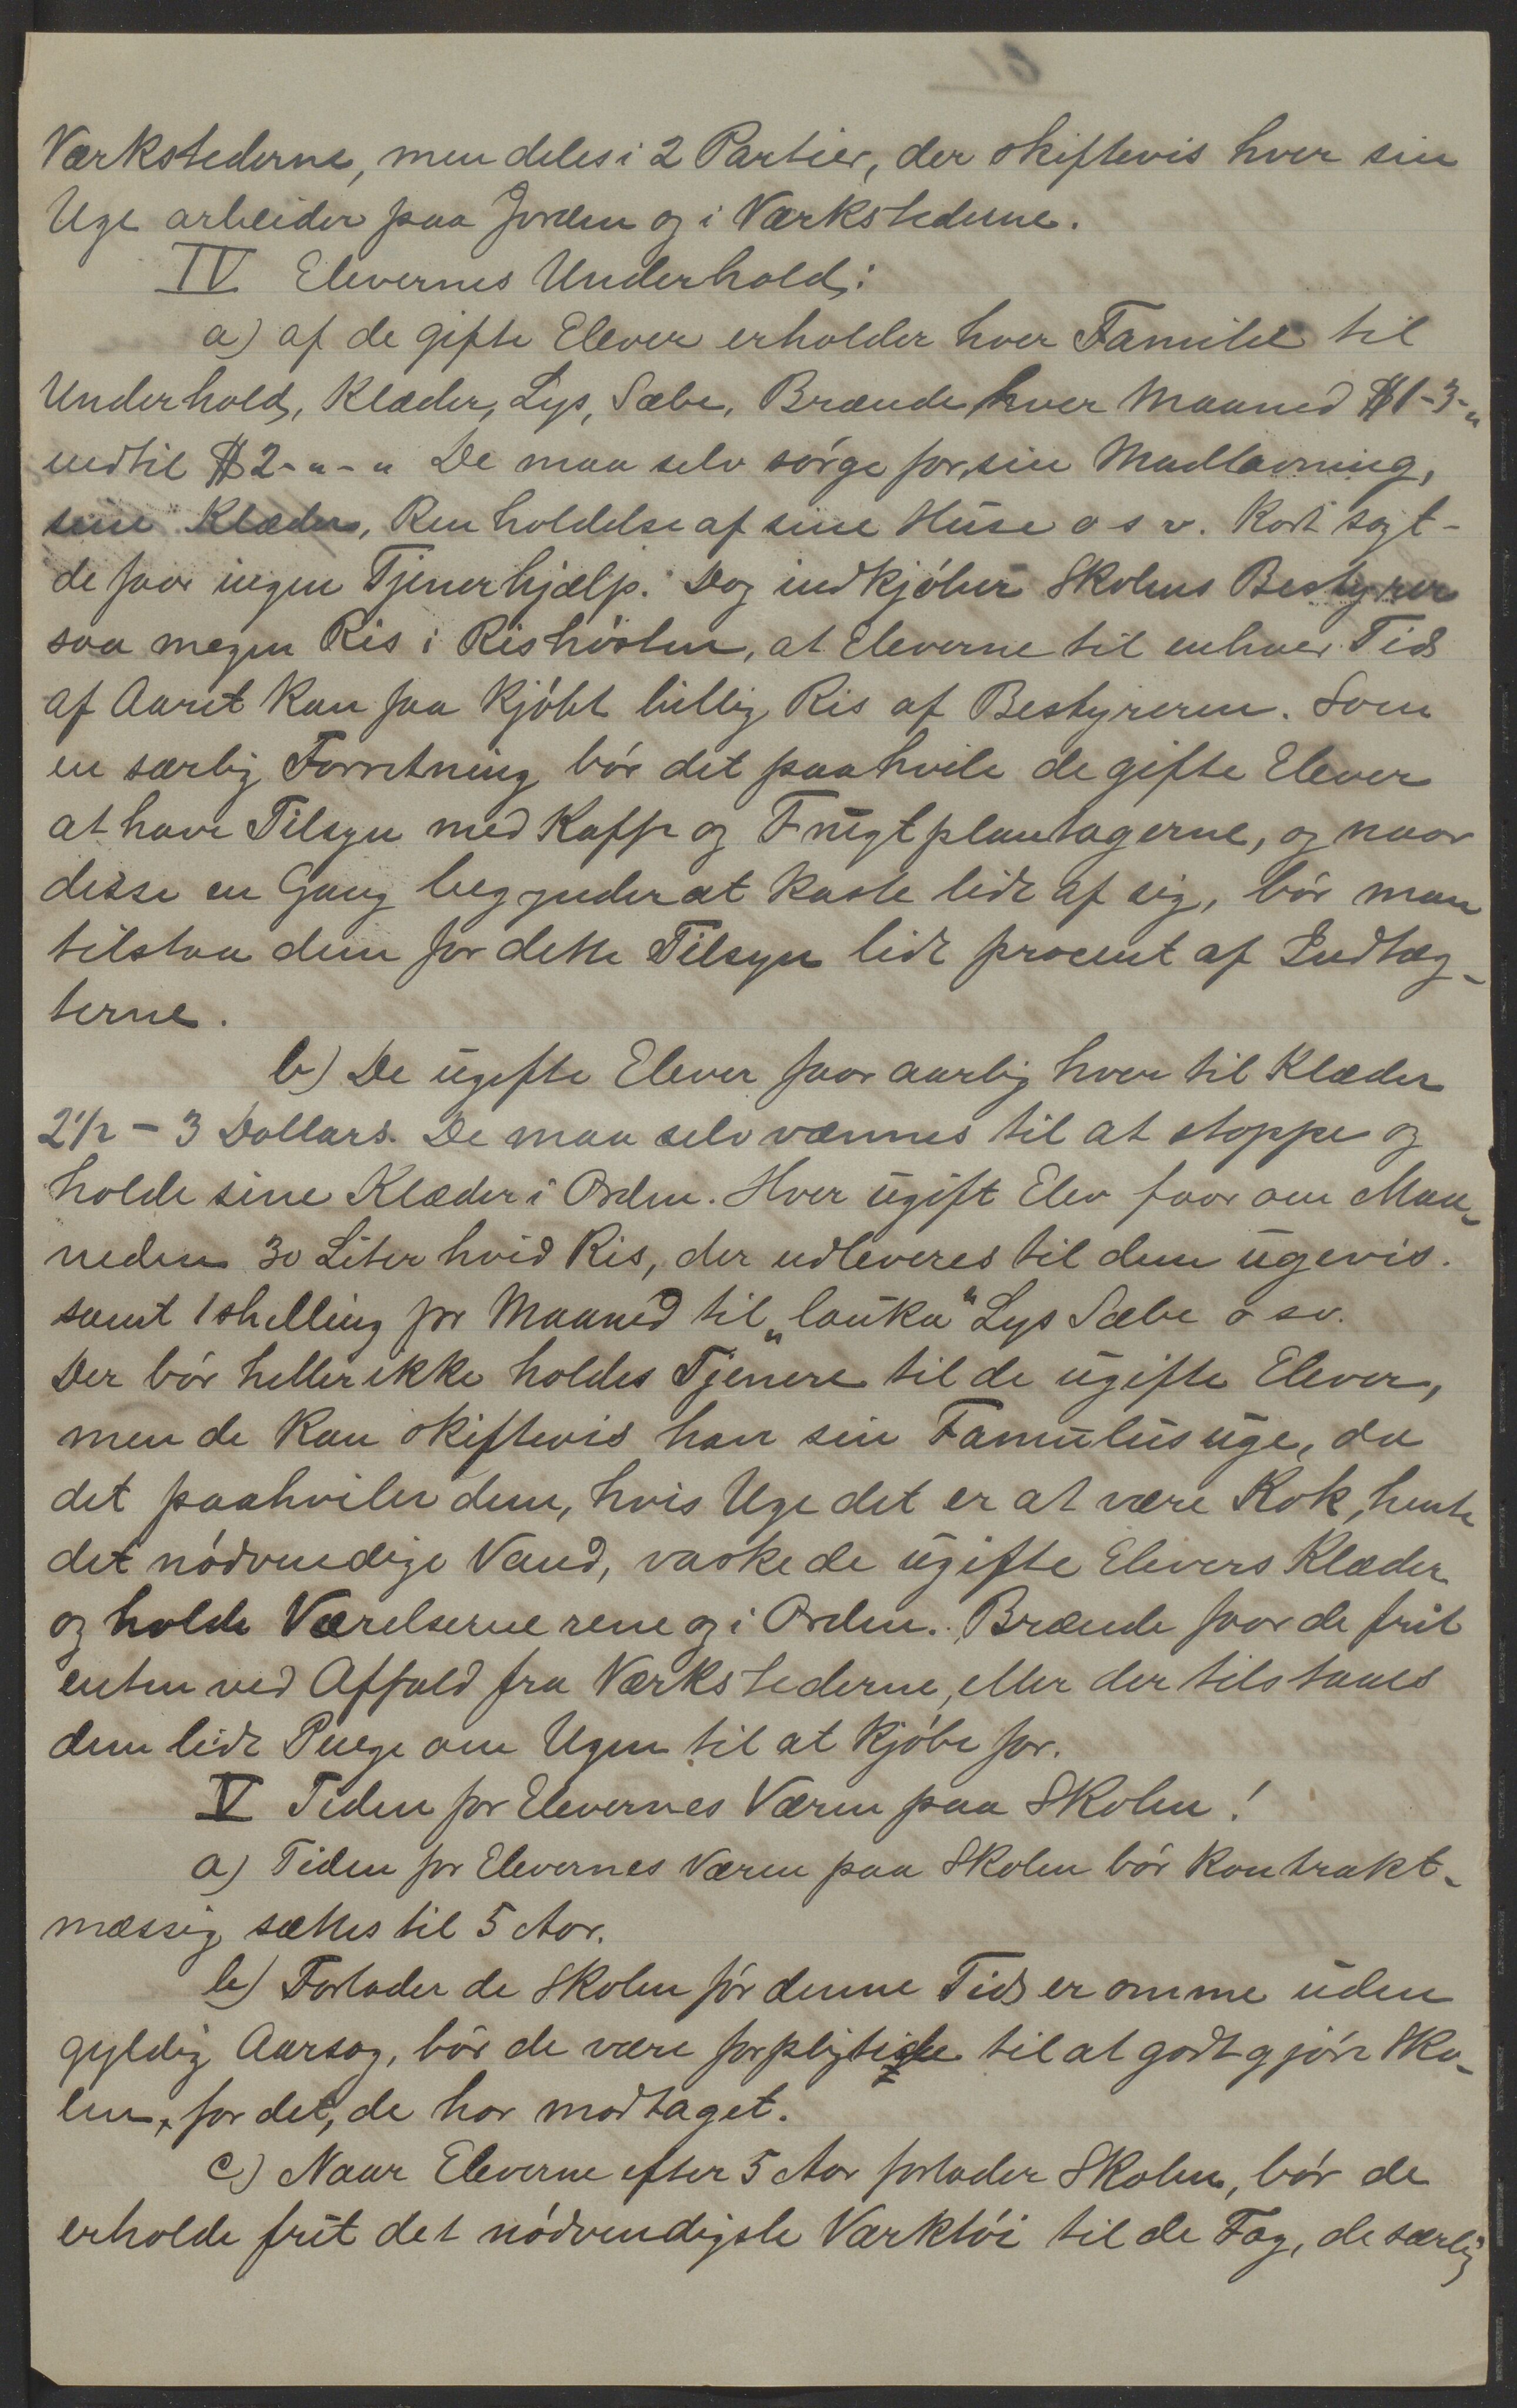 Værkstederne, men deles i 2 Partier, der skiftevis hver sin
Uge arbeider paa Jorden og i Værkstederne.
IV Elevernes Underhold:
a) af de gifte Elever erholder hver Familie til
Underhold, Klæder, Lys, Sæbe, Brænde hver Maaned $1-3-"
indtil $2-"-" De maa selv sørge for sin Madlavning,
sine Klæder, Renholdelse af sine Huse o s v. Kort sagt-
de faar ingen Tjenerhjælp. Dog indkjøber Skolens Bestyrer
saa megen Ris i Rishøsten, at Eleverne til enhver Tid
af Aaret kan faa kjøbt billig Ris af Bestyreren. Som
en særlig Forretning bør det paahvile de gifte Elever
at have Tilsyn med Kaffe og Frugtplantagerne, og naar
disse en Gang begynder at kaste lidt af sig, bør man
tilstaa dem for dette Tilsyn lidt procent af Indtæg-
terne.
b) De ugifte Elever faar aarlig hver til Klæder
2 1/2 - 3 Dollars. De maa selv vænnes til at stoppe og
holde sine Klæder i Orden. Hver ugift Elev faar om Maa-
neden 30 Liter hvid Ris, der udleveres til dem ugevis.
samt 1 shilling pr Maaned til „lauka" Lys Sæbe o sv.
Der bør heller ikke holdes Tjenere til de ugifte Elever,
men de kan skiftevis have sin Famulusuge, da
det paahviler dem, hvis Uge det er at være Kok, hente
det nødvendige Vand, vaske de ugifte Elevers Klæder
og holde Værelserne rene og i Orden. Brænde faar de frit
enten ved Affald fra Værkstederne, eller der tilstaaes
dem lidt Penge om Ugen til at kjøbe for.
V Tiden for Elevernes Væren paa Skolen!
a) Tiden for Elevernes Væren paa Skolen bør kontrakt-
mæssig sættes til 5 Aar.
b) Forlader de Skolen før denne Tid er omme uden
gyldig Aarsag, bør de være forpligtige til at godtgjøre Sko-
len, for det, de har modtaget.
c) Naar Eleverne efter 5 Aar forlader Skolen, bør de
erholde frit det nødvendigste Værktøi til de Fag, de særlig